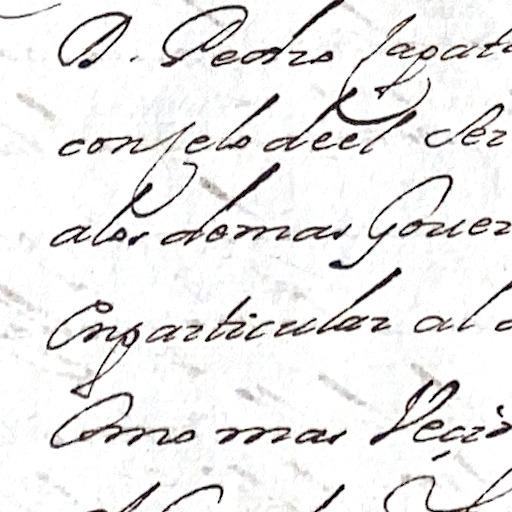 D. Pedro Sapat
conselo deel Ser
alos demas Gouer
Enparticular al d
Como mas Veçin